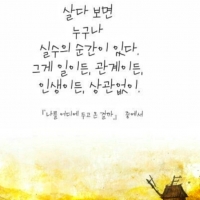 살다 보면
누구나
실수의 순간이 있다.
그게 일이든, 관계이든,
인생이든, 상관없이.
「나를 어디에 두고 온 걸까」 중에서